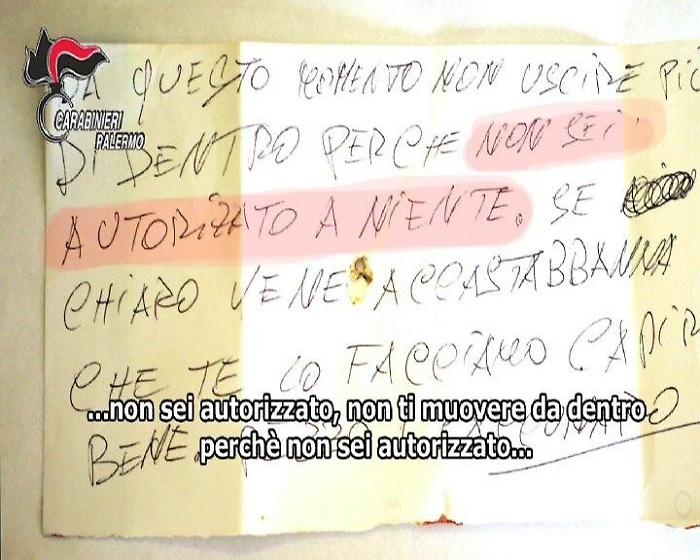 DA QUESTO MOMENTO NON USCIRE PIÙ
CARABINIERI
PALERMO
DI DENTRO PERCHE NON SEI
AUTORIZZATO A NIENTE. SE
CHIARO VENE ACCASTABBANNA
CHE TE LO FACCIAMO CAPIR
...non sei autorizzato, non ti muovere da dentro
perchè non sei autorizzato...
BENE